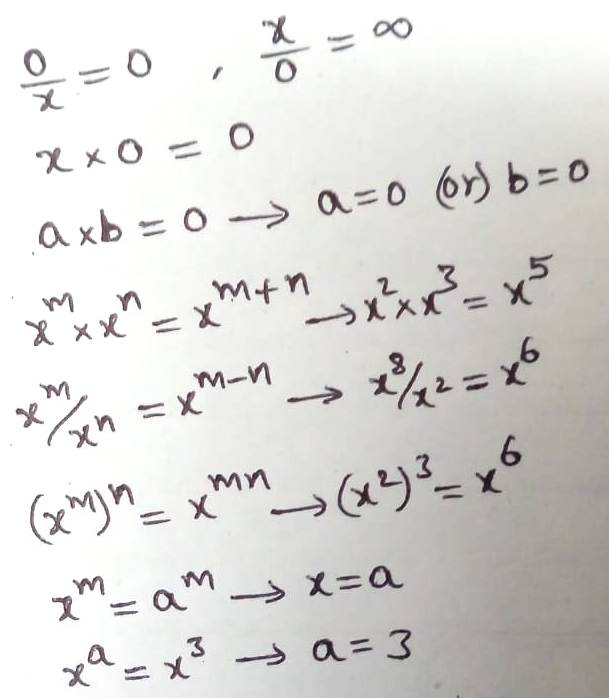 0/x = 0 , x/0 = ∞
x × 0 = 0
a×b = 0 → a=0 (or) b=0
xᵐ × xⁿ = xᵐ⁺ⁿ → x² × x³ = x⁵
xᵐ/xⁿ = xᵐ⁻ⁿ → x⁸/x² = x⁶
(xᵐ)ⁿ = xᵐⁿ → (x²)³ = x⁶
xᵐ = aᵐ → x = a
xᵃ = x³ → a = 3